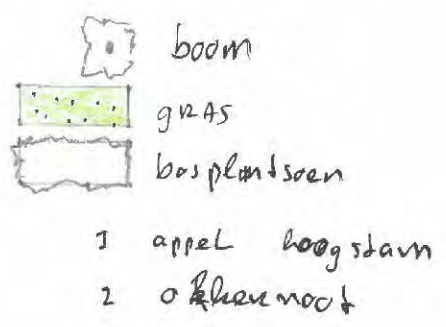 boom
gRAS
bosplantsoen
1 appel hoogstam
2 okkernoot